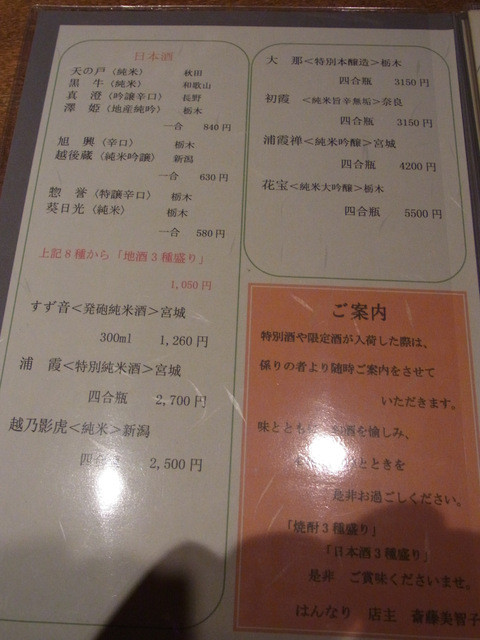 日本酒
天の戸（純米） 秋田
黒 牛（純米） 和歌山
真 澄（吟醸辛口） 長野
澤 姫（地産純吟） 栃木
一合 840円
旭 興（辛口） 栃木
越後蔵（純米吟醸） 新潟
一合 630円
惣 誉（特醸辛口） 栃木
葵日光（純米） 栃木
一合 580円
上記8種から「地酒3種盛り」
1,050円
すず音＜発砲純米酒＞宮城
300ml 1,260円
浦 霞＜特別純米酒＞宮城
四合瓶 2,700円
越乃影虎＜純米＞新潟
四合 2,500円
大 那＜特別本醸造＞栃木
四合瓶 3150円
初霞 ＜純米旨辛無垢＞奈良
四合瓶 3150円
浦霞禅＜純米吟醸＞宮城
四合瓶 4200円
花宝＜純米大吟醸＞栃木
四合瓶 5500円
ご案内
特別酒や限定酒が入荷した際は、
係りの者より随時ご案内をさせて
いただきます。
味ととも お酒を愉しみ、
とときを
是非お過ごしください。
「焼酎3種盛り」
「日本酒3種盛り」
是非 ご賞味くださいませ。
はんなり 店主 斎藤美智子